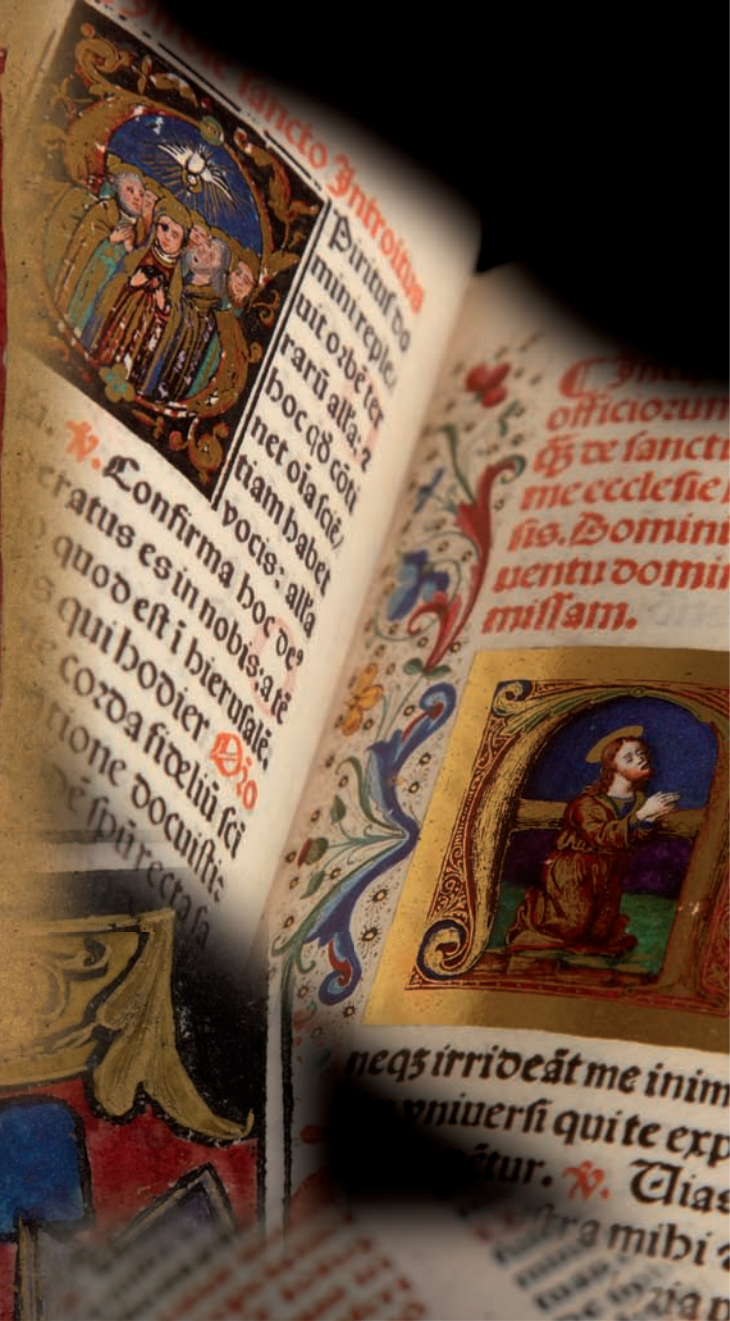 ſancto Introitus
Piritus do
mini reple/
uit orbē ter
rarū alľa: ⁊
hoc qđ cōti
net oīa ſciē/
tiam habet
vocis: alľa
℣. Confirma hoc de⁹
eratus es in nobis: a tē
quod eſt i hieruſalē.
qui hodier Oīo
corda fideliū ſci
tione docuiſti:
ſpū recta ſa
officiorum
qʒ de ſancti
me eccleſie
ſis. Domini
uentu domin
miſſam.
neqʒ irrideāt me inim
vniuerſi qui te exp
ētur. ℣. Uias
ſtra mihi ⁊